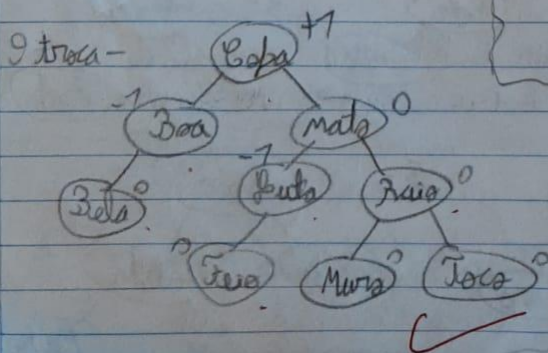 9 troca -
Copa +1
-1 Boa Mato 0
Bela 0 -1 Raio 0
0 Feio Muro 0 Toco 0